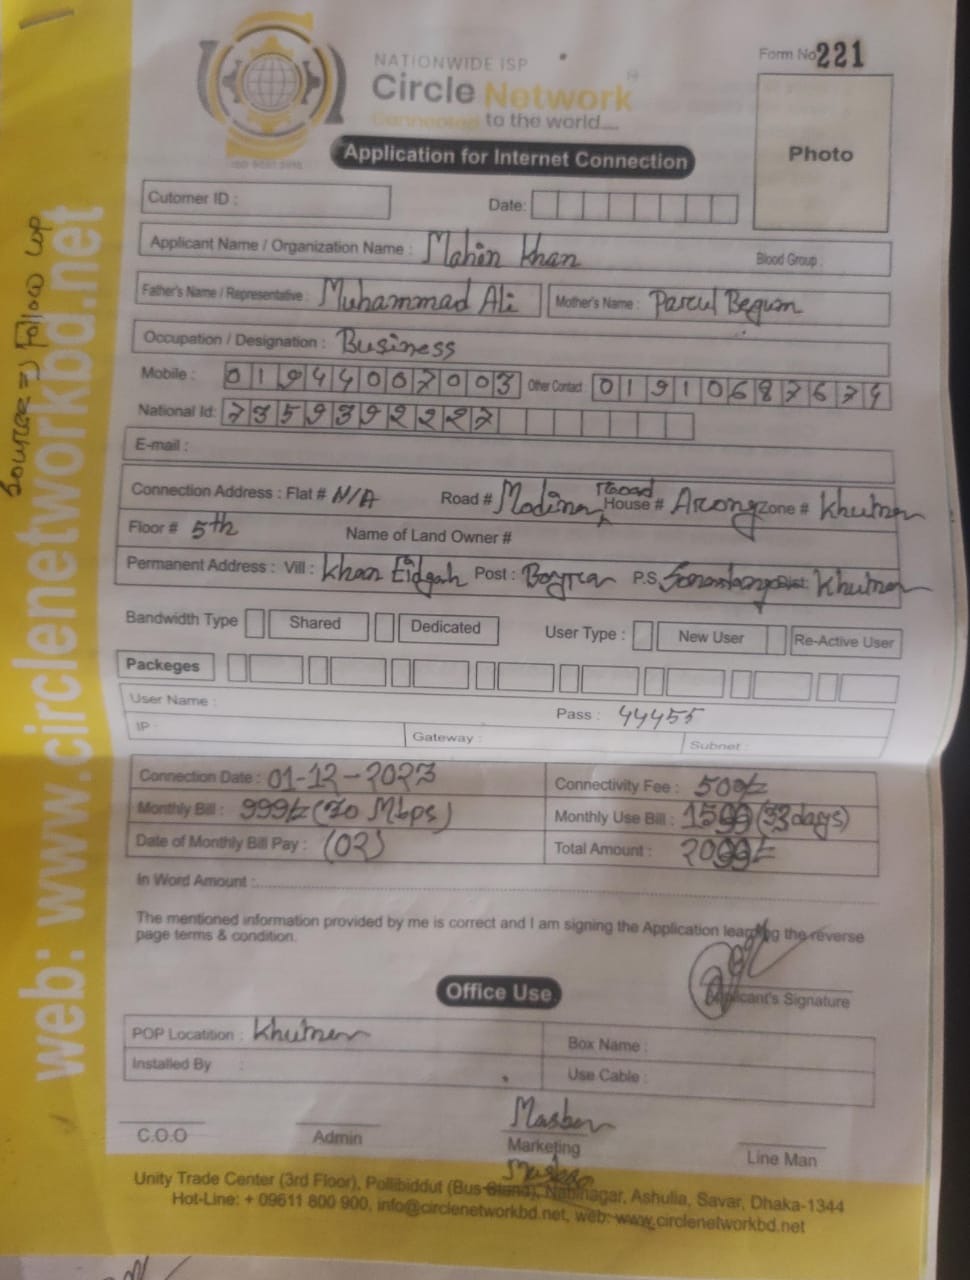 NATIONWIDE ISP
Circle Network
Connected to the world....
ISO 9001:2015
Form No 221
Photo
Application for Internet Connection
Cutomer ID :
Date:
Applicant Name / Organization Name : Mahin Khan Blood Group :
Father's Name / Representative : Muhammad Ali Mother's Name : Parul Begum
Occupation / Designation : Business
Mobile : 01944007003 Other Contact 01910687674
National Id: 7359392227
E-mail :
Connection Address : Flat # N/A Road # Modina Road House # Arong Zone # Khulna
Floor # 5th Name of Land Owner #
Permanent Address : Vill : Khan Eidgah Post : Boyra P.S. Dist: Khulna
Bandwidth Type Shared Dedicated User Type : New User Re-Active User
Packeges
User Name :
Pass : 44455
IP : Gateway : Subnet :
Connection Date : 01-12-2023 Connectivity Fee : 500/=
Monthly Bill : 999/= (70 Mbps) Monthly Use Bill : 1599 (33 days)
Date of Monthly Bill Pay : (02) Total Amount : 2099/=
In Word Amount :
The mentioned information provided by me is correct and I am signing the Application learning the reverse
page terms & condition.
Applicant's Signature
Office Use
POP Locatition : Khulna Box Name :
Installed By : Use Cable :
C.O.O Admin Marketing Line Man
Unity Trade Center (3rd Floor), Pollibiddut (Bus Stand), Nabinagar, Ashulia, Savar, Dhaka-1344
Hot-Line: + 09611 800 900, info@circlenetworkbd.net, web: www.circlenetworkbd.net
web: www.circlenetworkbd.net
Source => Follow up